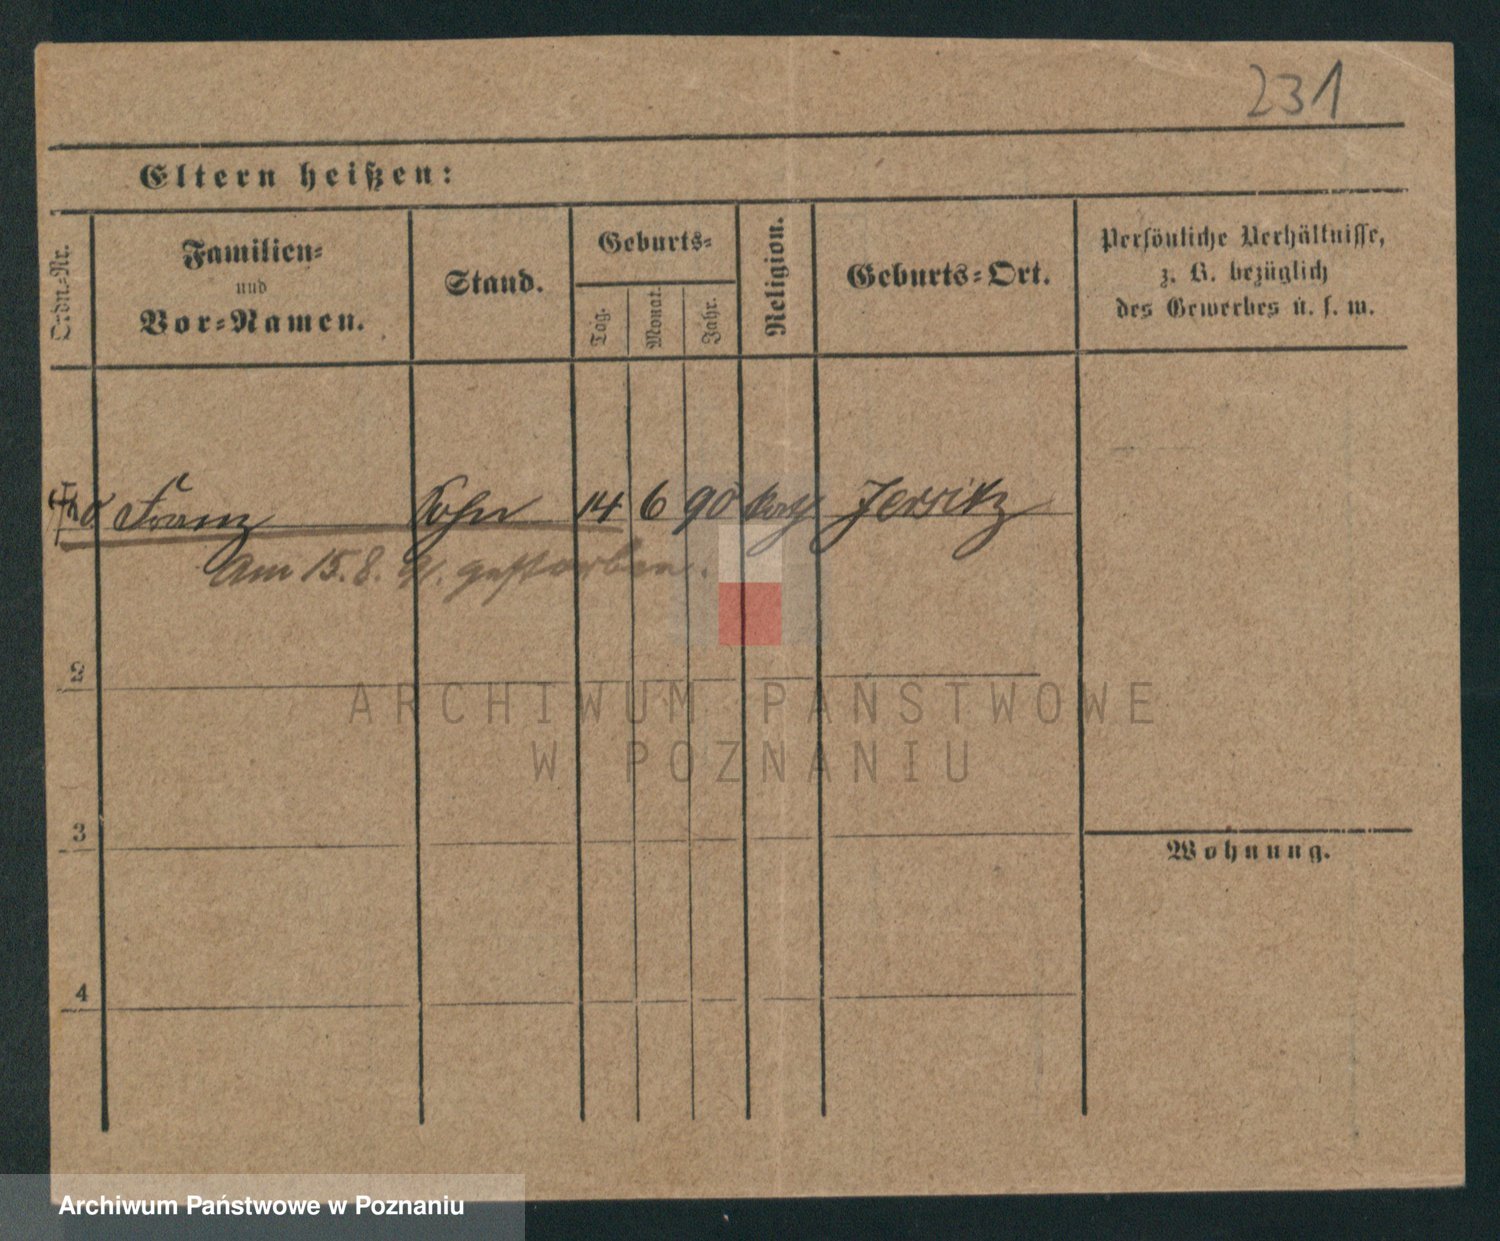 231
Eltern heißen:
Ordn.-Nr.
Familien-
und
Vor-Namen.
Stand.
Geburts-
Tag.
Monat.
Jahr.
Religion.
Geburts-Ort.
Persönliche Verhältnisse,
z. B. bezüglich
des Gewerbes u. s. w.
Franz Sohn 14 6 90 kath Jersitz
Am 15. 8. 91. gestorben.
2
ARCHIWUM PAŃSTWOWE
W POZNANIU
3
Wohnung.
4
Archiwum Państwowe w Poznaniu